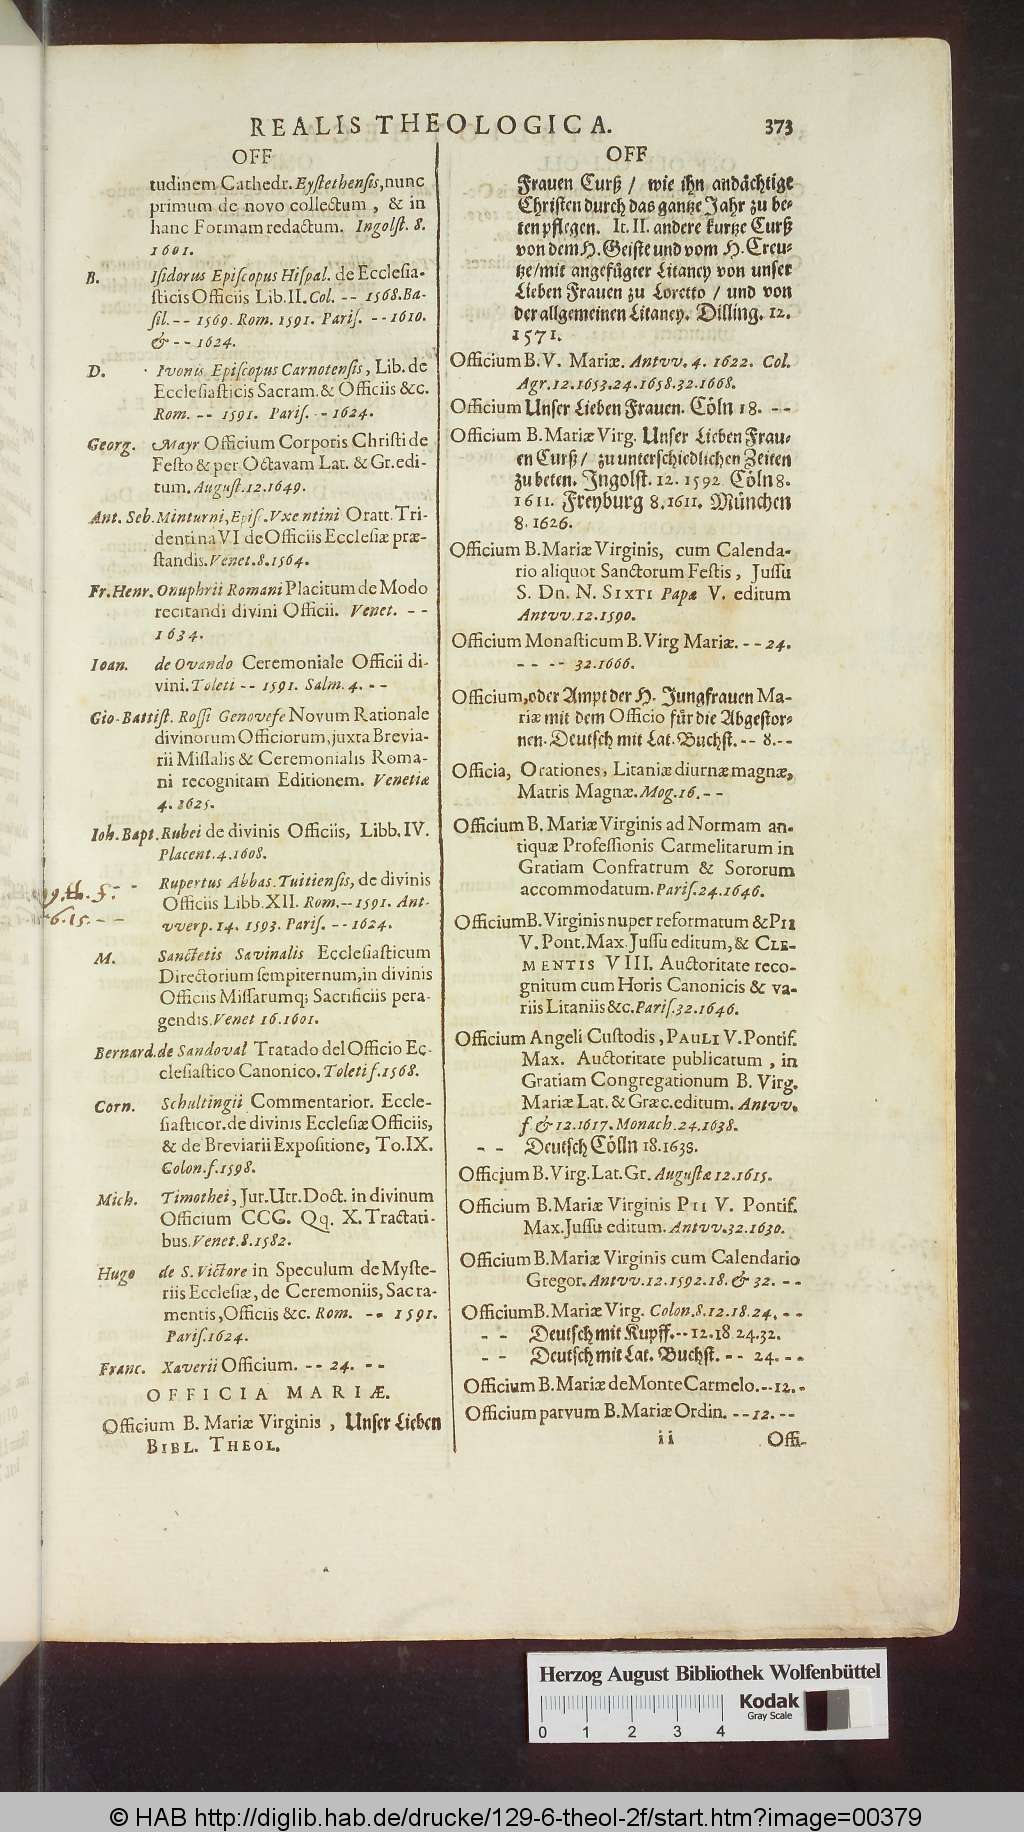 REALIS THEOLOGICA. 373
OFF
tudinem Cathedr. Eyſtethenſis, nunc
primum de novo collectum, & in
hanc Formam redactum. Ingolſt. 8.
1601.
B. Iſidorus Epiſcopus Hiſpal. de Eccleſia-
ſticis Officiis Lib. II. Col. -- 1568. Ba-
ſil. -- 1569. Rom. 1591. Pariſ. -- 1610.
& -- 1624.
D. Ivonis Epiſcopus Carnotenſis, Lib. de
Eccleſiaſticis Sacram. & Officiis &c.
Rom. -- 1591. Pariſ. -- 1624.
Georg. Mayr Officium Corporis Chriſti de
Feſto & per Octavam Lat. & Gr. edi-
tum. Auguſt. 12. 1649.
Ant. Seb. Minturni, Epiſ. Vxentini Oratt. Tri-
dentina VI de Officiis Eccleſiæ præ-
ſtandis. Venet. 8. 1564.
Fr. Henr. Onuphrii Romani Placitum de Modo
recitandi divini Officii. Venet. --
1634.
Ioan. de Ovando Ceremoniale Officii di-
vini. Toleti -- 1591. Salm. 4. --
Gio-Battiſt. Roſſi Genoveſe Novum Rationale
divinorum Officiorum, juxta Brevia-
rii Miſſalis & Ceremonialis Roma-
ni recognitam Editionem. Venetiæ
4. 1625.
Ioh. Bapt. Rubei de divinis Officiis, Libb. IV.
Placent. 4. 1608.
- Rupertus Abbas. Tuitienſis, de divinis
Officiis Libb. XII. Rom. -- 1591. Ant-
vverp. 14. 1593. Pariſ. -- 1624.
6.15. --
M. Sanctetis Savinalis Eccleſiaſticum
Directorium ſempiternum, in divinis
Officiis Miſſarumq; Sacrificiis pera-
gendis. Venet 16. 1601.
Bernard. de Sandoval Tratado del Officio Ec-
cleſiaſtico Canonico. Toleti f. 1568.
Corn. Schultingii Commentarior. Eccle-
ſiaſticor. de divinis Eccleſiæ Officiis,
& de Breviarii Expoſitione, To. IX.
Colon. f. 1598.
Mich. Timothei, Jur. Utr. Doct. in divinum
Officium CCC. Qq. X. Tractati-
bus. Venet. 8. 1582.
Hugo de S. Victore in Speculum de Myſte-
riis Eccleſiæ, de Ceremoniis, Sacra-
mentis, Officiis &c. Rom. -- 1591.
Pariſ. 1624.
Franc. Xaverii Officium. -- 24. --
OFFICIA MARIÆ.
Officium B. Mariæ Virginis, Unſer Lieben
BIBL. THEOL.
OFF
Frauen Curß / wie ihn andächtige
Chriſten durch das gantze Jahr zu be-
ten pflegen. It. II. andere kurtze Curß
von dem H. Geiſte und vom H. Creu-
tze/mit angefügter Litaney von unſer
Lieben Frauen zu Loretto / und von
der allgemeinen Litaney. Dilling. 12.
1571.
Officium B. V. Mariæ. Antvv. 4. 1622. Col.
Agr. 12. 1653. 24. 1658. 32. 1668.
Officium Unſer Lieben Frauen. Cöln 18. --
Officium B. Mariæ Virg. Unſer Lieben Frau-
en Curß / zu unterſchiedlichen Zeiten
zu beten. Ingolſt. 12. 1592 Cöln 8.
1611. Freyburg 8. 1611. München
8. 1626.
Officium B. Mariæ Virginis, cum Calenda-
rio aliquot Sanctorum Feſtis, Juſſu
S. Dn. N. SIXTI Papæ V. editum
Antvv. 12. 1590.
Officium Monaſticum B. Virg Mariæ. -- 24.
-- -- 32. 1666.
Officium, oder Ampt der H. Jungfrauen Ma-
riæ mit dem Officio für die Abgeſtor-
nen. Deutſch mit Lat. Buchſt. -- 8. --
Officia, Orationes, Litaniæ diurnæ magnæ,
Matris Magnæ. Mog. 16. --
Officium B. Mariæ Virginis ad Normam an-
tiquæ Profeſſionis Carmelitarum in
Gratiam Confratrum & Sororum
accommodatum. Pariſ. 24. 1646.
Officium B. Virginis nuper reformatum & PII
V. Pont. Max. Juſſu editum, & CLE-
MENTIS VIII. Auctoritate reco-
gnitum cum Horis Canonicis & va-
riis Litaniis &c. Pariſ. 32. 1646.
Officium Angeli Cuſtodis, PAULI V. Pontif.
Max. Auctoritate publicatum, in
Gratiam Congregationum B. Virg.
Mariæ Lat. & Græc. editum. Antvv.
f. & 12. 1617. Monach. 24. 1638.
-- Deutſch Cölln 18. 1638.
Officium B. Virg. Lat. Gr. Auguſtæ 12. 1615.
Officium B. Mariæ Virginis PII V. Pontif.
Max. Juſſu editum. Antvv. 32. 1630.
Officium B. Mariæ Virginis cum Calendario
Gregor. Antvv. 12. 1592. 18. & 32. --
Officium B. Mariæ Virg. Colon. 8. 12. 18. 24. --
-- Deutſch mit Kupff. -- 12. 18 24. 32.
-- Deutſch mit Lat. Buchſt. -- 24. --
Officium B. Mariæ de Monte Carmelo. -- 12. -
Officium parvum B. Mariæ Ordin. -- 12. --
ii Offi-
Herzog August Bibliothek Wolfenbüttel
0 1 2 3 4
Kodak
Gray Scale
© HAB http://diglib.hab.de/drucke/129-6-theol-2f/start.htm?image=00379